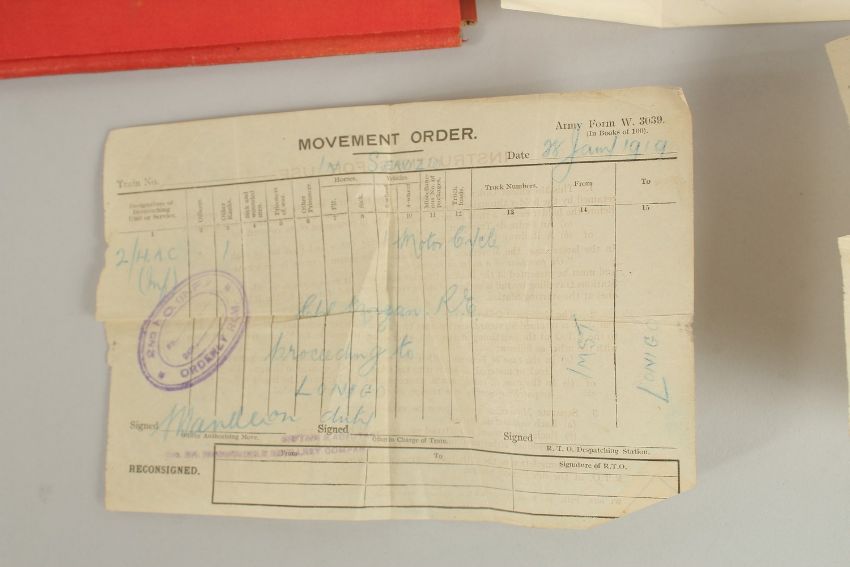 Army Form W. 3039.
(In Books of 100).
MOVEMENT ORDER.
Train No.
Date 28 Jan 1919
Designation of
Despatching
Unit or Service.
Officers.
Other
Ranks.
Sick and
wounded
men.
Prisoners
of war.
Other
Prisoners.
Horses.
Fit.
Sick.
Vehicles.
4-wheel
Truck
loads.
Truck Numbers.
From
To
1 2 3 4 5 6 7 8 9 10 11 12 13 14 15
2/H.A.C. 1 Motor Cycle
(Inf)
R.E.
proceeding to
LONIGO
duty
IMST
LONIGO
ORDERLY RM.
Signed
Officer Authorising Move.
Signed
Officer in Charge of Train.
Signed
R. T. O. Despatching Station.
RECONSIGNED.
From
To
Signature of R.T.O.